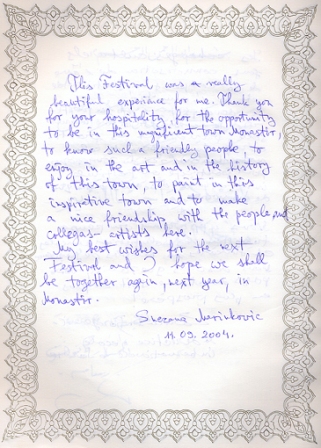 This Festival was a really
beautiful experience for me. Thank you
for your hospitality, for the opportunity
to be in this magnificent town Monastir,
to know such a friendly people, to
enjoy in the art and in the history
of this town, to paint in this
inspiretive town and to make
a nice friendship with the people and
collegas-artists here.
My best wishes for the next
Festival and I hope we shall
be together again, next year, in
Monastir.
Snezana Marinkovic
14.09.2004.